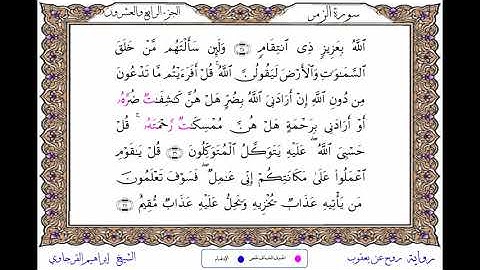 سورة الزمر الجزء الرابع والعشرون
ٱللَّهُ بِعَزِيزٍ ذِى ٱنتِقَامٍ وَلَئِن سَأَلْتَهُم مَّنْ خَلَقَ
ٱلسَّمَٰوَٰتِ وَٱلْأَرْضَ لَيَقُولُنَّ ٱللَّهُ ۚ قُلْ أَفَرَءَيْتُم مَّا تَدْعُونَ
مِن دُونِ ٱللَّهِ إِنْ أَرَادَنِىَ ٱللَّهُ بِضُرٍّ هَلْ هُنَّ كَٰشِفَٰتٌ ضُرَّهُۥ
أَوْ أَرَادَنِى بِرَحْمَةٍ هَلْ هُنَّ مُمْسِكَٰتٌ رَّحْمَتَهُۥ ۚ قُلْ
حَسْبِىَ ٱللَّهُ ۖ عَلَيْهِ يَتَوَكَّلُ ٱلْمُتَوَكِّلُونَ قُلْ يَٰقَوْمِ
ٱعْمَلُوا۟ عَلَىٰ مَكَانَتِكُمْ إِنِّى عَٰمِلٌ ۖ فَسَوْفَ تَعْلَمُونَ
مَن يَأْتِيهِ عَذَابٌ يُخْزِيهِ وَيَحِلُّ عَلَيْهِ عَذَابٌ مُّقِيمٌ
رواية: روح عن يعقوب الشيخ إبراهيم الفرجاوي